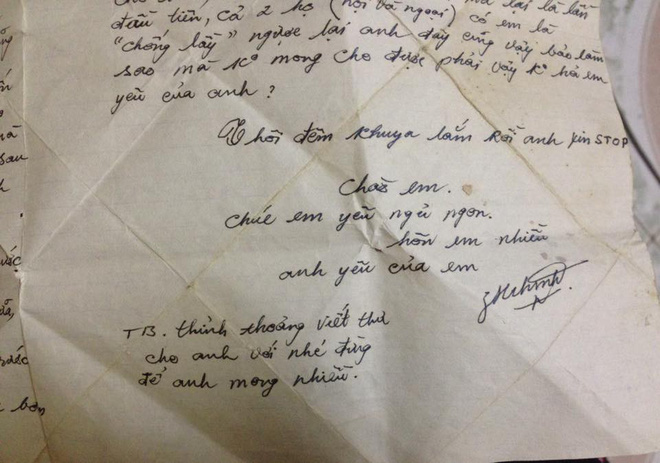 mà lại là lần
đầu tiên, cả 2 họ (nội và ngoại) có em là
"chống lầy" ngược lại anh đây cũng vậy bảo làm
sao mà k° mong cho được phải vậy k° hả em
yêu của anh ?
Thôi đêm khuya lắm rồi anh xin STOP
Chào em.
chúc em yêu ngủ ngon.
hôn em nhiều
anh yêu của em
TB. thỉnh thoảng viết thư
cho anh với nhé đừng
để anh mong nhiều.
sau
bơn